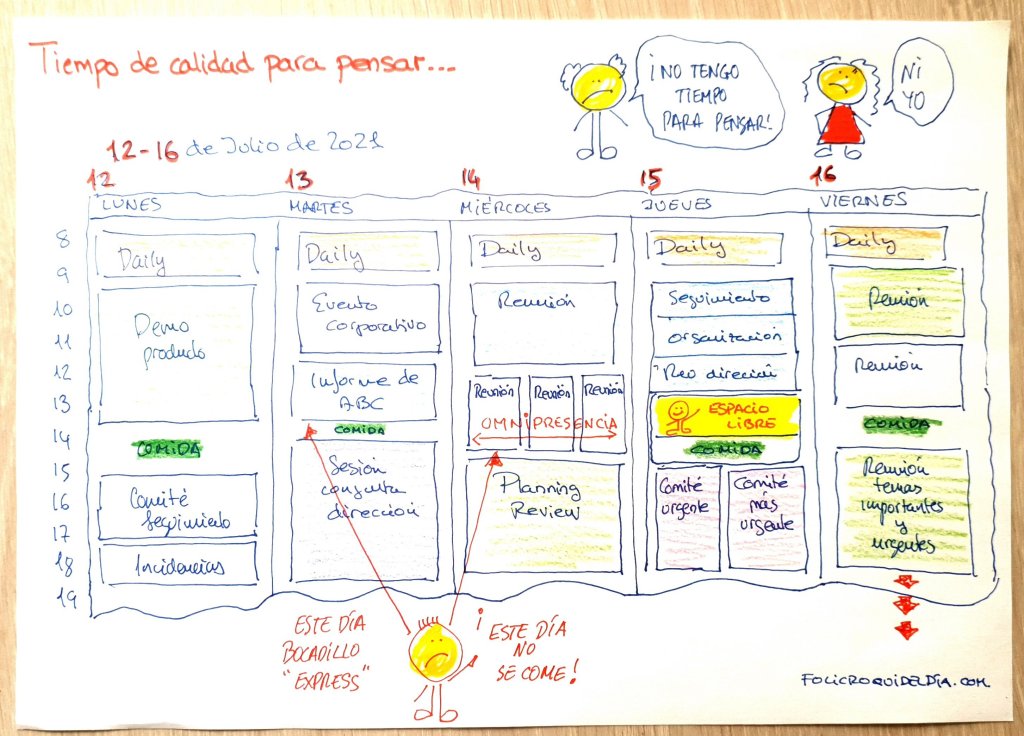 Tiempo de calidad para pensar...
¡NO TENGO
TIEMPO
PARA PENSAR!
NI
YO
12-16 de Julio de 2021
12
13
14
15
16
LUNES
MARTES
MIÉRCOLES
JUEVES
VIERNES
8
9
10
11
12
13
14
15
16
17
18
19
Daily
Demo
producto
COMIDA
Comité
Seguimiento
Incidencias
Daily
Evento
corporativo
Informe de
ABC
COMIDA
Sesión
conjunta
dirección
Daily
Reunión
Reunión
Reunión
Reunión
OMNIPRESENCIA
Planning
Review
Daily
Seguimiento
organización
Reo dirección
ESPACIO
LIBRE
COMIDA
Comité
urgente
Comité
más
urgente
Daily
Reunión
Reunión
COMIDA
Reunión
temas
importantes
y
urgentes
ESTE DÍA
BOCADILLO
"EXPRESS"
¡ESTE DÍA
NO
SE COME!
FOLICROQUIDELDÍA.COM